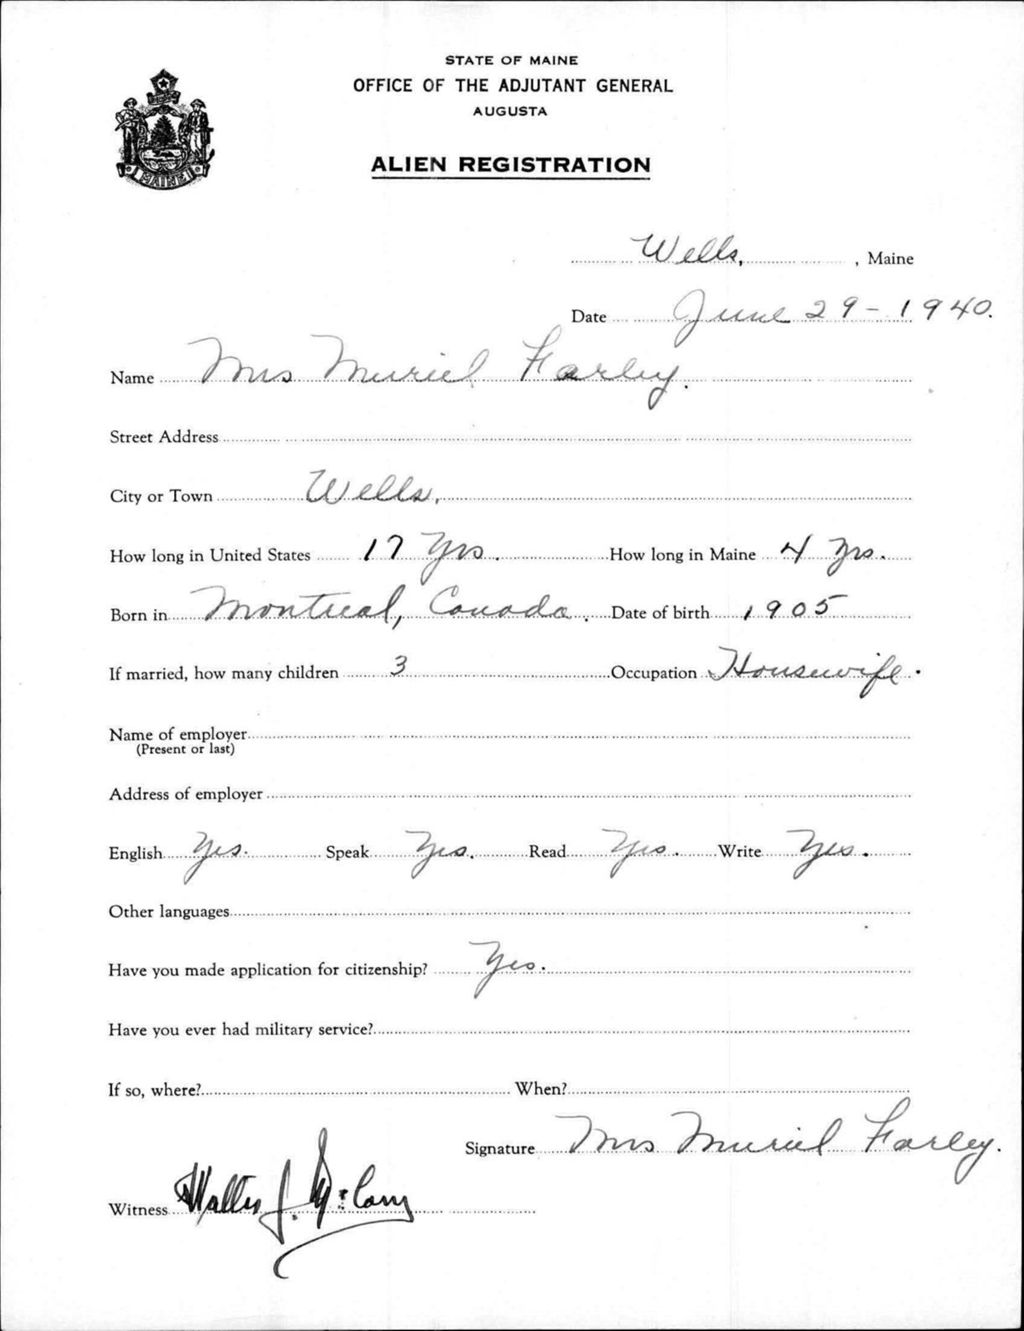 STATE OF MAINE
OFFICE OF THE ADJUTANT GENERAL
AUGUSTA
ALIEN REGISTRATION
MAINE
Wells, , Maine
Date June 29 - 1940.
Name Mrs Muriel Farley.
Street Address
City or Town Wells,
How long in United States 17 Yrs. How long in Maine 4 Yrs.
Born in Montreal, Canada. Date of birth 1905
If married, how many children 3 Occupation Housewife.
Name of employer
(Present or last)
Address of employer
English Yes. Speak Yes. Read Yes. Write Yes.
Other languages
Have you made application for citizenship? Yes.
Have you ever had military service?
If so, where? When?
Signature Mrs Muriel Farley.
Witness Walter J.